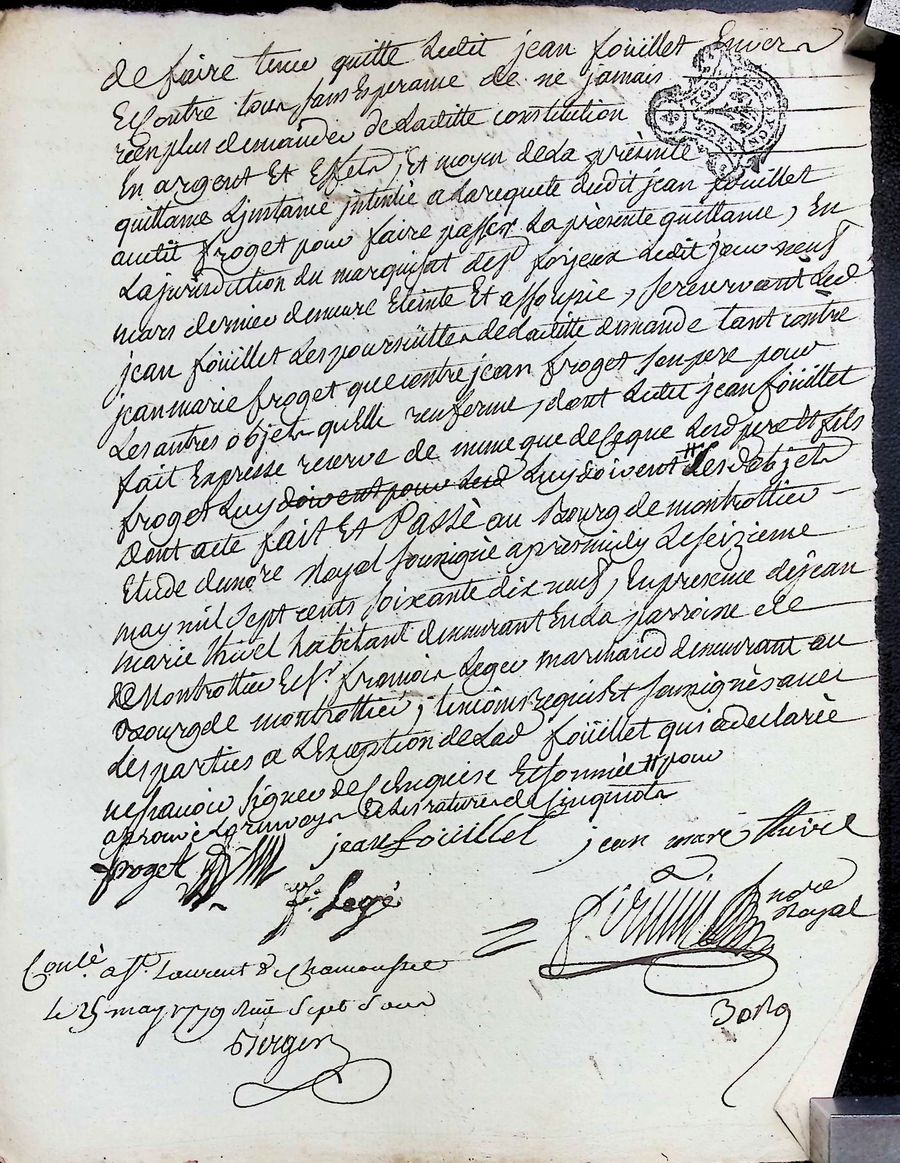 de faire tenir quitte Ledit jean foüillet Envers
Et Contre tous, sans Esperance de ne jamais
rien plus demander de Laditte constitution
En argent Et Effets, Et moyen de La présente
quittance L'jnstance jntentée a La requete dudit jean foüillet
audit froget pour faire passer La présente quittance, En
La jurisdiction du marquisat de Lad jour neuf
mars dernier demeure Eteinte Et assoupie, se reservant Led
jean foüillet Les poursuittes de Laditte demande tant contre
jean marie froget que contre jean froget son pere pour
Les autres objets qu'elle renferme, dont Ledit jean foüillet
fait Expresse reserve de meme que de Ce que Lesd pere Et fils
froget Luy doivent pour Lesd Luy doivent # des d objets
Dont acte fait Et Passè au Bourg de montrottier
Etude du no.re Royal soussigné après midy Le seizieme
may mil sept cents soixante dix neuf, En presence de jean
marie thivel habitant demeurant En La parroisse de
de Montrottier Et sr. francois Leger marchand demeurant au
Bourg de montrottier, temoins requis Et soussignès avec
Les parties a L'Exception de Lad foüillet qui a declarée
ne scavoir signer de Ce Enquise Et sommée # pour
aprouvè Le renvoy Et La rature de Cinq mots
froget jean foüillet jean mare thivel
fs. Legé
no.re Royal
Conlé. a St. Laurent de Chamousset
Le 25 may 1779 Reçu sept sous
Berger